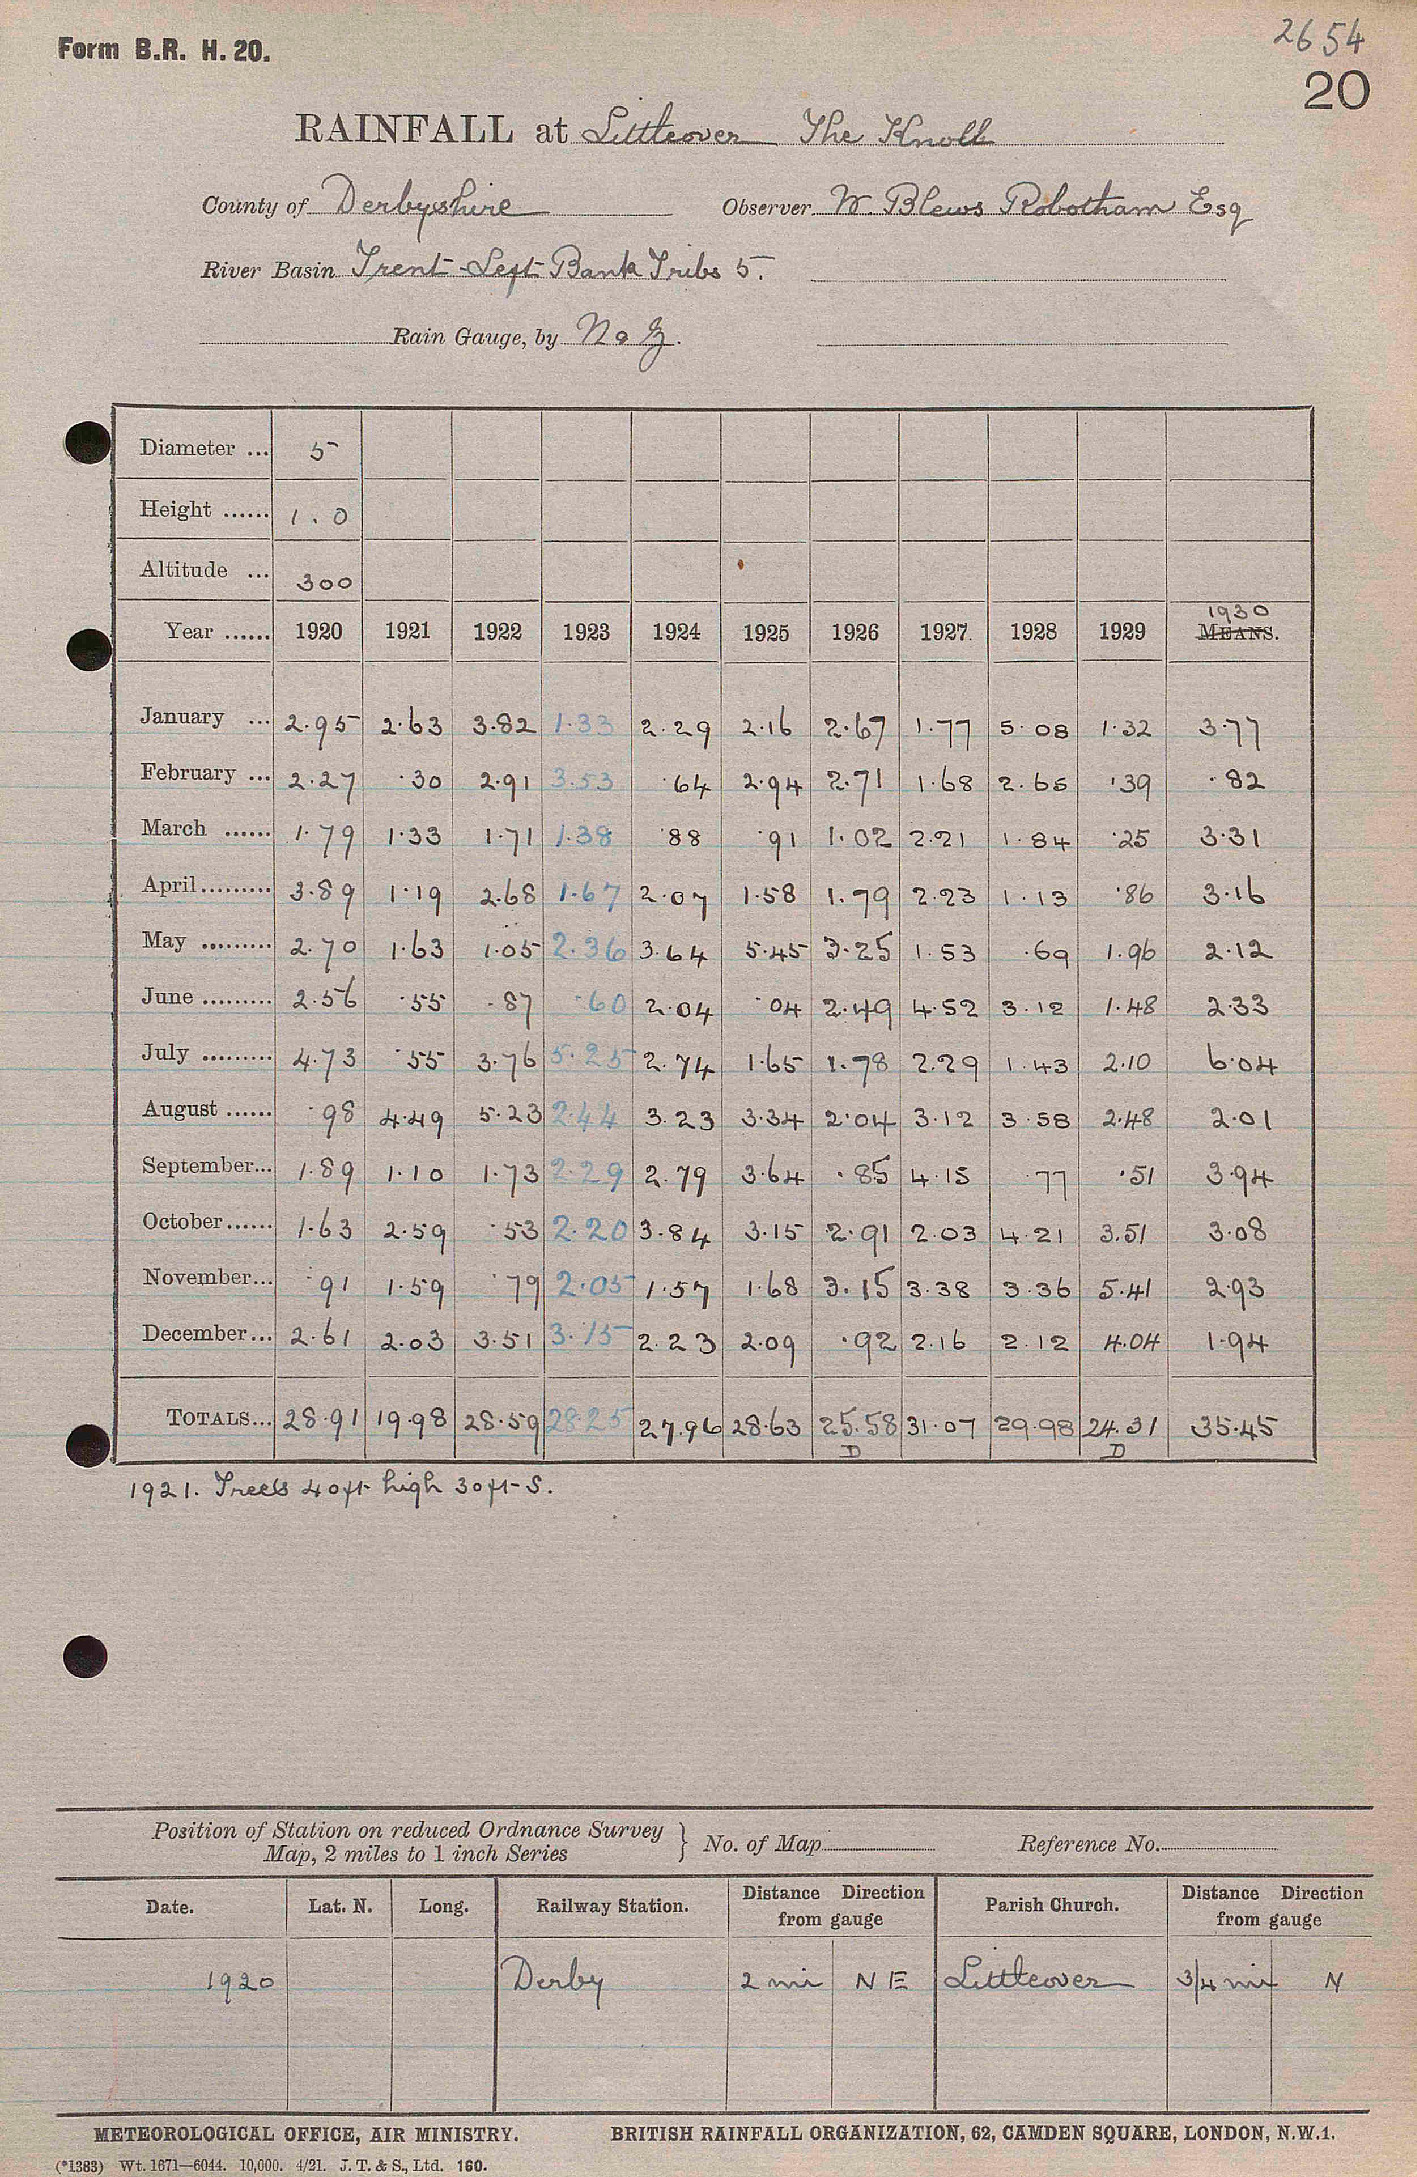 2654
Form B.R. H. 20.
20
RAINFALL at Littleover The Knoll
County of Derbyshire Observer W. Blews Robotham Esq
River Basin Trent-Left Bank Tribs 5.
Rain Gauge, by Neg.
Diameter ... 5
Height ...... 1.0
Altitude ... 300
1930
Year ...... 1920 1921 1922 1923 1924 1925 1926 1927 1928 1929 MEANS.
January ... 2.95 2.63 3.82 1.33 2.29 2.16 2.67 1.77 5.08 1.32 3.77
February ... 2.27 .30 2.91 3.53 .64 2.94 2.71 1.68 2.65 .39 .82
March ...... 1.79 1.33 1.71 1.38 .88 .91 1.02 2.21 1.84 .25 3.31
April ......... 3.89 1.19 2.68 1.67 2.07 1.58 1.79 2.23 1.13 .86 3.16
May ......... 2.70 1.63 1.05 2.36 3.64 5.45 3.25 1.53 .69 1.96 2.12
June ......... 2.56 .55 .87 .60 2.04 .04 2.49 4.52 3.12 1.48 2.33
July ......... 4.73 .55 3.76 5.25 2.74 1.65 1.78 2.29 1.43 2.10 6.04
August ...... .98 4.49 5.23 2.44 3.23 3.34 2.04 3.12 3.58 2.48 2.01
September... 1.89 1.10 1.73 2.29 2.79 3.64 .85 4.15 .77 .51 3.94
October...... 1.63 2.59 .53 2.20 3.84 3.15 2.91 2.03 4.21 3.51 3.08
November... .91 1.59 .79 2.05 1.57 1.68 3.15 3.38 3.36 5.41 2.93
December... 2.61 2.03 3.51 3.15 2.23 2.09 .92 2.16 2.12 4.04 1.94
TOTALS... 28.91 19.98 28.59 28.25 27.96 28.63 25.58 31.07 29.98 24.31 35.45
D D
1921. Trees 40ft high 30ft S.
Position of Station on reduced Ordnance Survey
Map, 2 miles to 1 inch Series } No. of Map Reference No.
Date. Lat. N. Long. Railway Station. Distance Direction from gauge Parish Church. Distance Direction from gauge
1920 Derby 2 mi NE Littleover 3/4 mi N
METEOROLOGICAL OFFICE, AIR MINISTRY. BRITISH RAINFALL ORGANIZATION, 62, CAMDEN SQUARE, LONDON, N.W.1.
(*1383) Wt. 1671—6044. 10,000. 4/21. J. T. & S., Ltd. 160.